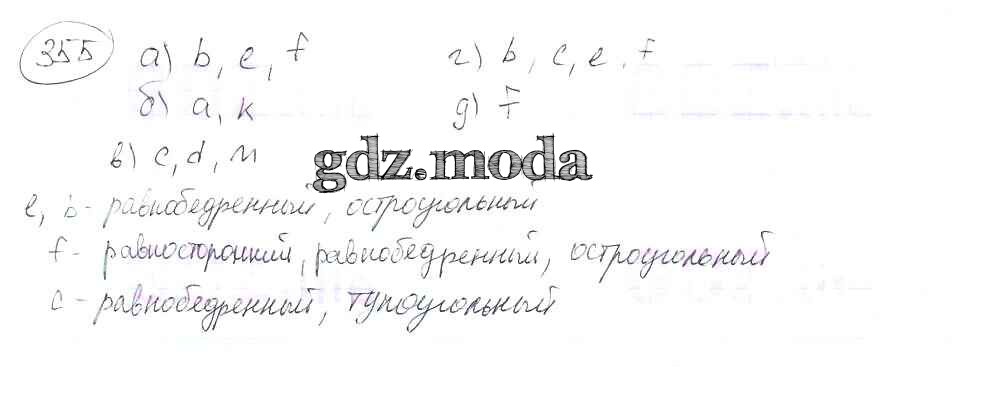 355 а) b, e, f г) b, c, e, f
б) a, к д) f
в) c, d, м
gdz.moda
e, b - равнобедренный, остроугольный
f - равносторонний, равнобедренный, остроугольный
c - равнобедренный, тупоугольный